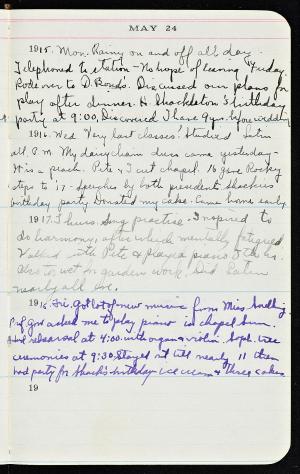 MAY 24
1915. Mon. Rainy on and off all day.
Telephoned to station - No hope of leaving Friday.
over to D. Bond's. Discussed our plans for
play after dinner. H. Shackleton's birthday
party at 9:00. Discovered I have 9 yrs. before wedding
1916. Wed. Very last classes! Studied Latin
all P.M. My daisy chain dress came yesterday -
It is a peach. Pete & I cut chapel.
steps to 17 - Speeches by both presidents. Shack's
birthday party. Donated my cake. Came home early.
1917. Thurs. Song practise - Inspired to
do harmony, after which mentally fatigued.
Walked with Pete & played piano
Also too wet for garden work. Did Latin
nearly all eve.
1918. Fri. Got lot of new music from Miss
Prof. asked me to play piano in chapel Sun.
Had rehearsal at 4:00 with organ & violin. Soph. tree
ceremonies at 9:30. Stayed at it till nearly 11 then
had party for Shack's birthday - ice cream & three cakes
19